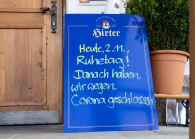 Hirter
Heute, 2.11.,
Ruhetag!
Danach haben
wir wegen
Corona geschlossen